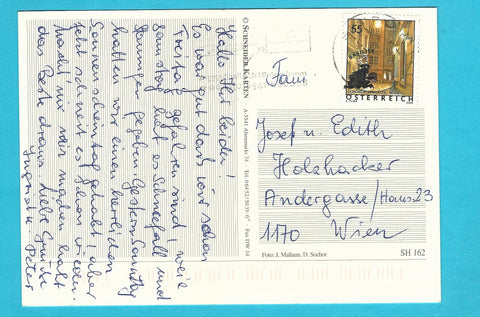 Hallo Ihr beiden!
Es war gut dass wir schon
Freitag gefahren sind, weil
Samstag hat es Schneefall und
gegeben. Gestern Sonntag
hatten wir einen herrlichen
Sonnenscheintag gehabt, aber
jetzt schneit es schon wieder.
Macht nix wir machen halt
das Beste draus. Liebe Grüße
Peter
© SCHNEIDER KARTEN
A-5541 Altenmarkt 74
Tel. 0 64 52/50 35-0*
Fax DW 14
55
ÖSTERREICH
Fam.
Josef u. Edith
Holzhacker
Andergasse/Haus 23
1170 Wien
Foto: J. Mallaun, D. Sochor
SH 162